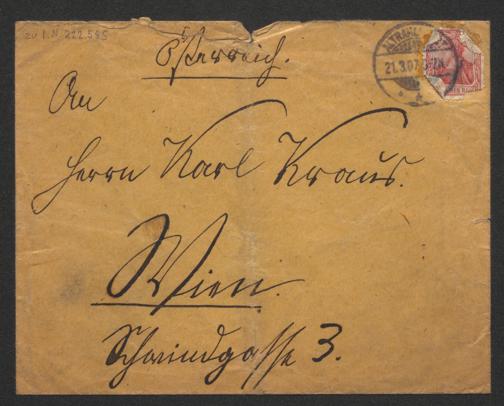 zu I.N. 222.595
Österreich.
21.3.07
An
Herrn Karl Kraus.
Wien.
Schwindgasse 3.